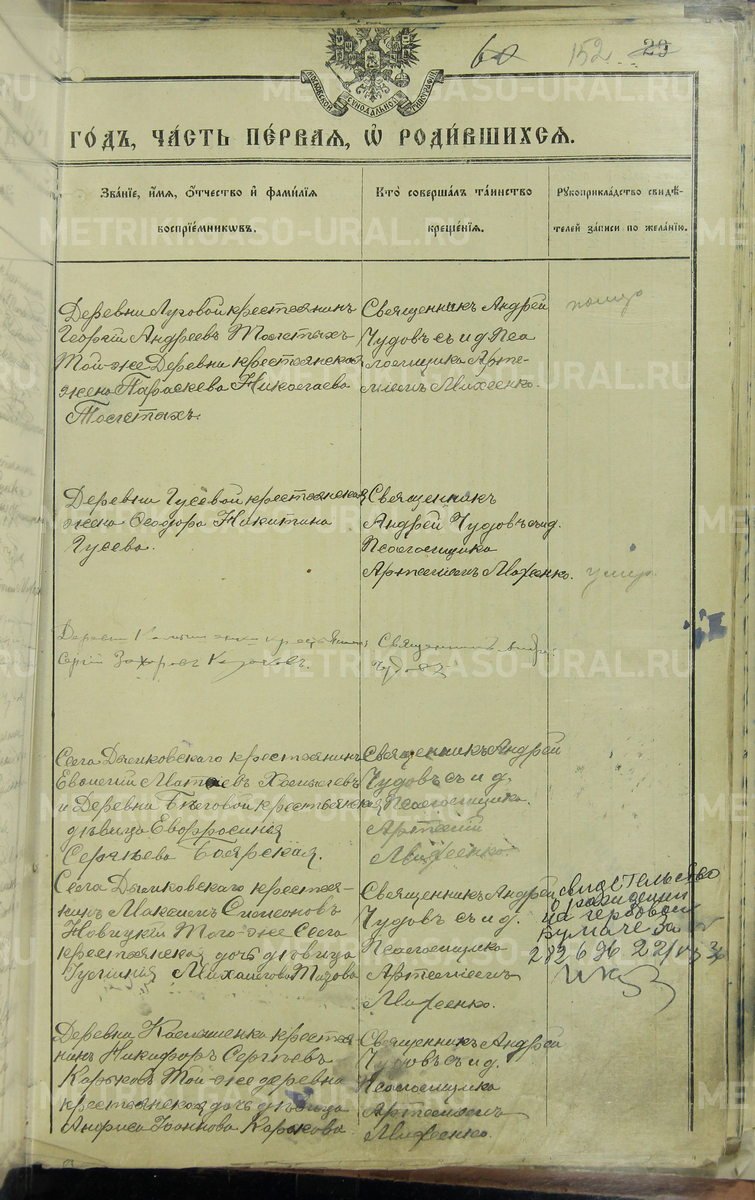 60 152 29
МОСКОВСКОЙ СУНОДАЛЬНОЙ ТИПОГРАФІИ
ГО́ДЪ, ЧА́СТЬ ПЕ́РВАЯ, Ѡ҆ РОДИ́ВШИХСѦ.
Зва́нїе, и҆́мѧ, ѻ҆́тчество и҆ фами́лїѧ
воспрїе́мникѡвъ.
Кто̀ соверша́лъ та́инство
креще́нїѧ.
Рꙋкоприкла́дство свидѣ́-
телей за́писи по жела́нїю.
Деревни Луговой крестьянинъ
Георгій Андреевъ Толстыхъ
Той-же Деревни крестьянская
жена Параскева Николаева
Толстыхъ.
Священникъ Андрей
Чудовъ съ и д Пса
ломщика Арте-
міемъ Михеенко.
Деревни Гусевой крестьянская
жена Ѳеодора Никитина
Гусева.
Священникъ
Андрей Чудовъ съ и д.
Псаломщика
Артеміемъ Михеенко.
умер
Деревни крестьянинъ
Сергій Захаровъ
Священникъ Андрей
Чудовъ
Села Дымковскаго крестьянинъ
Евѳимій
и Деревни Бѣговой крестьянская
дѣвица Евфросинія
Сергѣева Боярская.
Священникъ Андрей
Чудовъ съ и д.
Псаломщика
Артемій
Михеенко.
Села Дымковскаго крестья-
нинъ Максимъ Симеоновъ
Новицкій Того-же Села
крестьянская дочь дѣвица
Михайлова
Священникъ Андрей
Чудовъ съ и д.
Псаломщика
Артеміемъ
Михеенко.
свидетельство
о рождении
на гербовой
бумаге за
282696 22/
Деревни Калашенко крестья-
нинъ Никифоръ Сергѣевъ
Карюковъ Той-же деревни
крестьянская дочь дѣвица
Анфиса Іоаннова Карюкова
Священникъ Андрей
Чудовъ съ и д.
Псаломщика
Артеміемъ
Михеенко.
METRIKI.GASO-URAL.RU